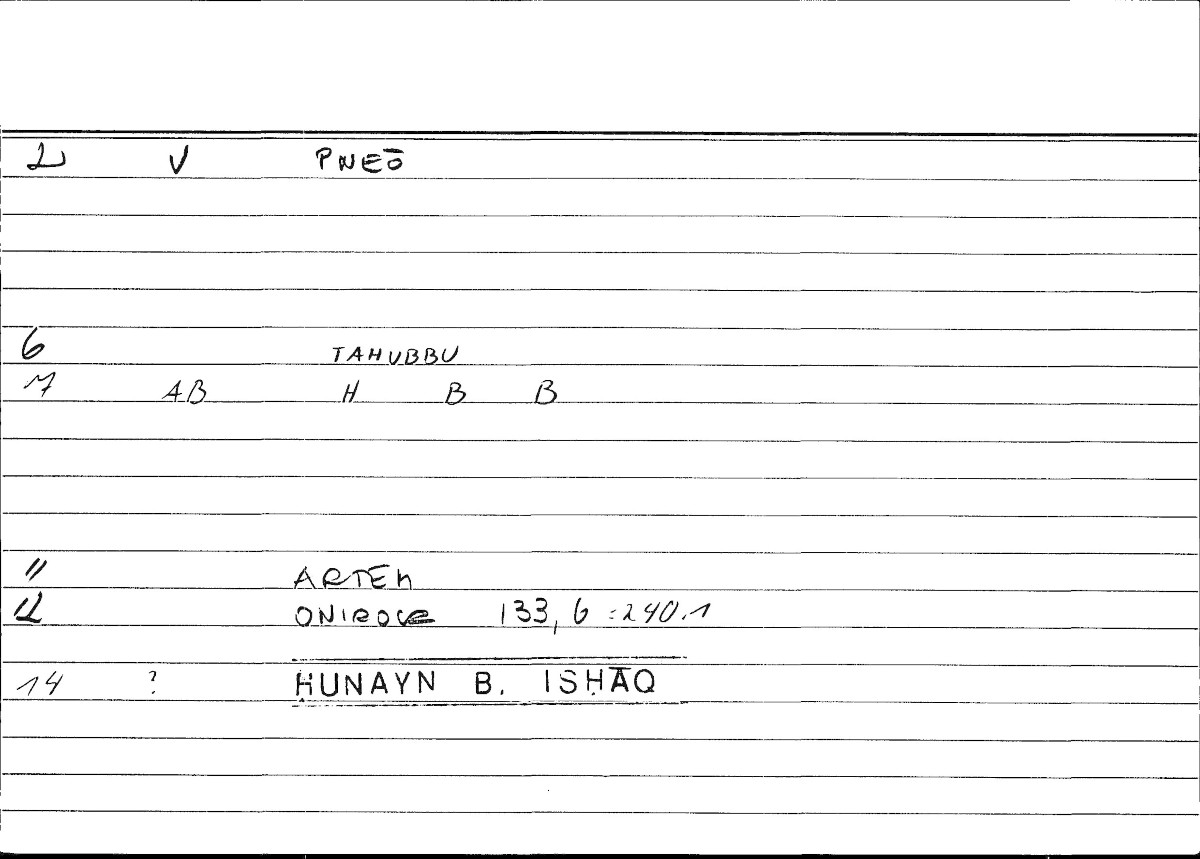 2 V PNEŌ
6 TAHUBBU
7 AB H B B
11 ARTEM
12 ONIROCR 133, 6 : 240.1
14 ? ḤUNAYN B. ISḤĀQ